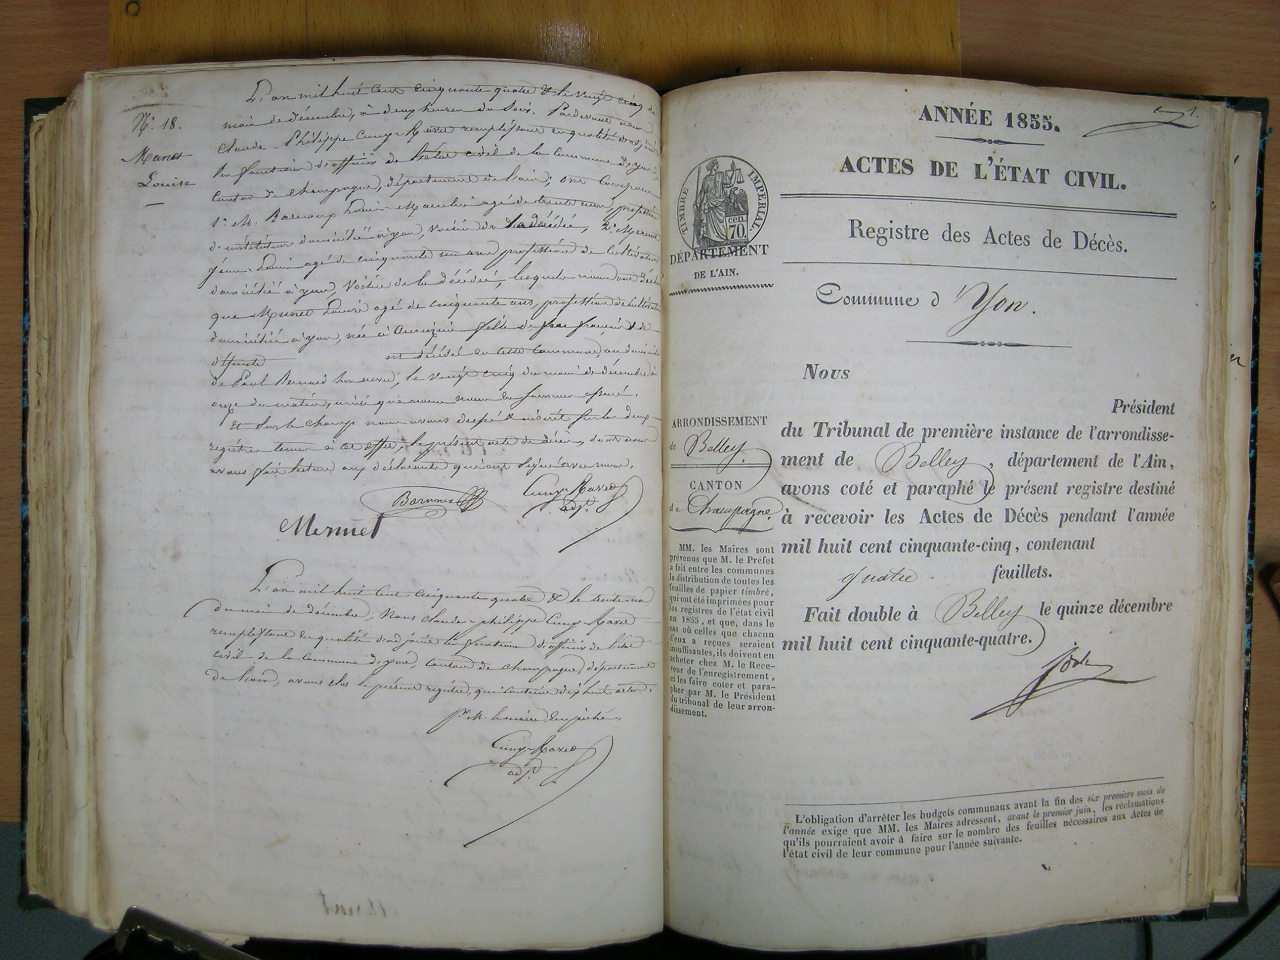 N.° 18.
Louise
L'an mil huit cent cinquante quatre & le vingt cinq du
mois de décembre, à deux heures du soir. Pardevant nous
Claude Philippe Cuny-Ravet remplissant en qualité
les fonctions d'officier de l'état civil de la commune d'yon,
canton de champagne, département de l'ain, ont comparu
1° M. Louis agé de trente neuf, profession
d'instituteur domicilié à yon voisin de la décédée, 2° Mermet
agé de cinquante un ans profession de
domicilié à yon, voisin de la décédée, lesquels nous ont déclaré
que agé de cinquante ans, profession de
domiciliée à yon, née à fille de françois & de
est décédée en cette commune, au domicile
de Paul Bernard le vingt cinq du mois de décembre à
onze du matin,
Et sur le champ nous avons dressé & inscrit sur les deux
registres tenus à cet effet, le présent acte de décès, dont nous
avons fait lecture aux déclarants qui ont signé avec nous.
Cuny-Ravet
adj.t
Mermet
L'an mil huit cent cinquante quatre & le trente un
du mois de décembre, Nous Claude-philippe Cuny-Ravet
remplissant en qualité d'adjoint les fonctions d'officier de l'état
civil de la commune d'yon, canton de champagne, département
de l'ain, avons clos le présent registre, qui contient dix huit actes.
pr. M. le maire empêché,
Cuny-Ravet
adj.t
ANNÉE 1855.
ACTES DE L'ÉTAT CIVIL.
TIMBRE IMPÉRIAL.
cen
70.
Registre des Actes de Décès.
DÉPARTEMENT
DE L'AIN.
Commune d'Yon.
Nous
Président
du Tribunal de première instance de l'arrondisse-
ment de Belley, département de l'Ain,
avons coté et paraphé le présent registre destiné
à recevoir les Actes de Décès pendant l'année
mil huit cent cinquante-cinq, contenant
quatre feuillets.
Fait double à Belley le quinze décembre
mil huit cent cinquante-quatre.
ARRONDISSEMENT
de Belley
CANTON
de Champagne.
MM. les Maires sont
prévenus que M. le Préfet
a fait entre les communes
la distribution de toutes les
feuilles de papier timbré,
qui ont été imprimées pour
les registres de l'état civil
en 1855, et que, dans le
cas où celles que chacun
d'eux a reçues seraient
insuffisantes, ils doivent en
acheter chez M. le Rece-
veur de l'enregistrement,
et les faire coter et para-
pher par M. le Président
du tribunal de leur arron-
dissement.
L'obligation d'arrêter les budgets communaux avant la fin des six premiers mois de
l'année exige que MM. les Maires adressent, avant le premier juin, les réclamations
qu'ils pourraient avoir à faire sur le nombre des feuilles nécessaires aux Actes de
l'état civil de leur commune pour l'année suivante.